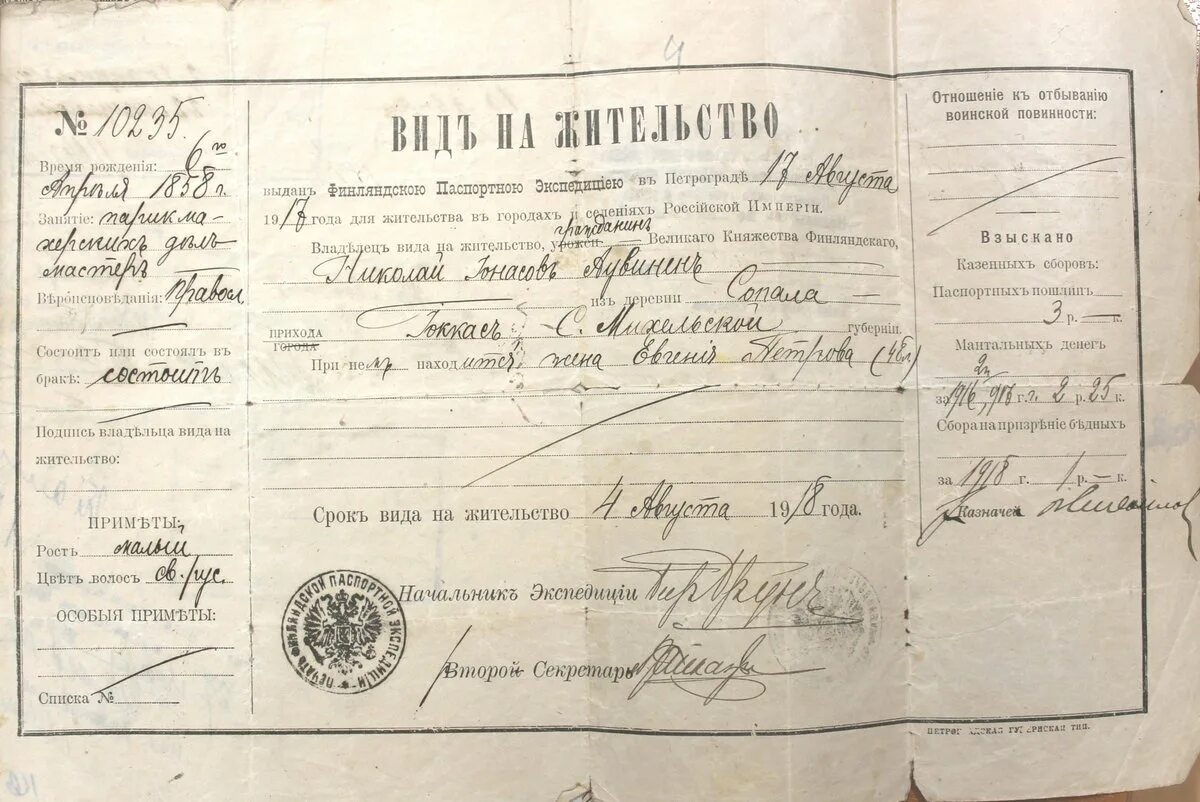 № 10235.
Время рожденія: 6го
Апрѣля 1858 г.
Занятіе: парикма-
херскихъ дѣлъ
мастеръ
Вѣроисповѣданія: Правосл
Состоитъ или состоялъ въ
бракѣ: состоитъ
Подпись владѣльца вида на
жительство:
ПРИМѢТЫ:
Ростъ малый
Цвѣтъ волосъ св. рус.
ОСОБЫЯ ПРИМѢТЫ:
Списка №
ВИДЪ НА ЖИТЕЛЬСТВО
выданъ Финляндскою Паспортною Экспедиціею въ Петроградѣ 17 Августа
1917 года для жительства въ городахъ и селеніяхъ Российской Имперіи.
гражданинъ
Владѣлецъ вида на жительство, урожен. Великаго Княжества Финляндскаго,
Николай Іонасовъ Аувиненъ
изъ деревни Сопала
ПРИХОДА Іоккасъ С. Михельской губерніи.
ГОРОДА
При немъ находится жена Евгенія Петрова (48л)
Срокъ вида на жительство 4 Августа 1918 года.
Начальникъ Экспедиціи
Второй Секретарь
ПЕЧАТЬ ФИНЛЯНДСКОЙ ПАСПОРТНОЙ ЭКСПЕДИЦІИ
Отношеніе къ отбыванію
воинской повинности:
Взыскано
Казенныхъ сборовъ:
Паспортныхъ пошлинъ
3 р. — к.
Мантальныхъ денегъ
за 1916/917 г.г. 2 р. 25 к.
Сбора на призрѣніе бѣдныхъ
за 1918 г. 1 р. — к.
Казначей
ПЕТРОГРАДСКАЯ ГУБЕРНСКАЯ ТИП.